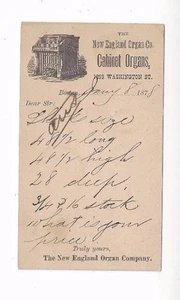 THE
New England Organ Co.
Cabinet Organs,
WASHINGTON ST.
Boston, Jany 8 1878
Dear Sir:
size
48 1/2 long
48 1/2 high
28 deep,
3/4 & 16 stock
what is your
price
Truly yours,
The New England Organ Company.